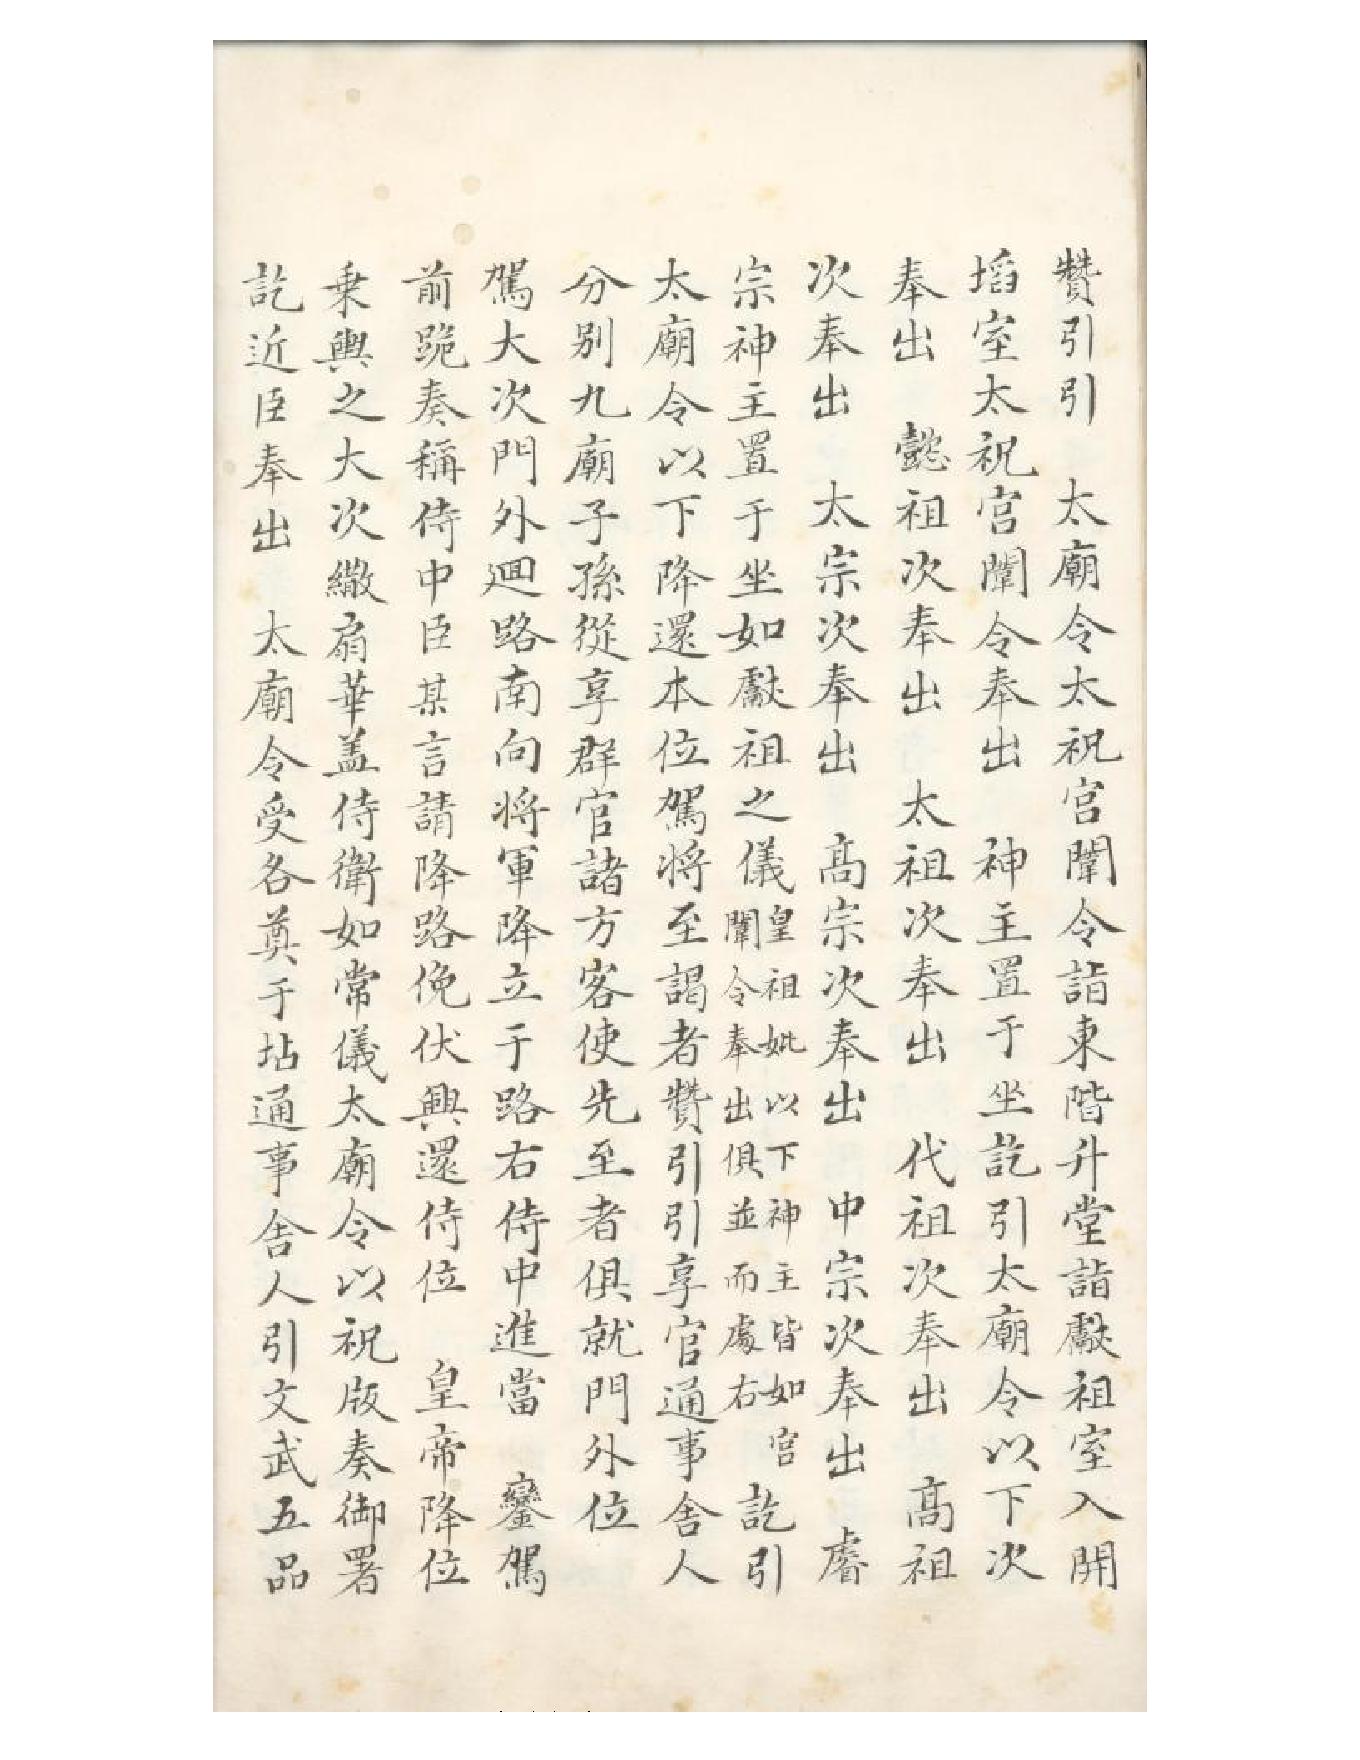 贊引引　太廟令太祝宮闈令詣東階升堂詣獻祖室入開
埳室太祝宮闈令奉出　神主置于坐訖引太廟令以下次
奉出　懿祖次奉出　太祖次奉出　代祖次奉出　高祖
次奉出　太宗次奉出　高宗次奉出　中宗次奉出　睿
宗神主置于坐如獻祖之儀皇祖妣以下神主皆如宮闈令奉出俱並而處右訖引
太廟令以下降還本位駕將至謁者贊引引享官通事舍人
分別九廟子孫從享群官諸方客使先至者俱就門外位
駕大次門外迴路南向將軍降立于路右侍中進當　鑾駕
前跪奏稱侍中臣某言請降路俛伏興還侍位　皇帝降位
乗輿之大次繖扇華盖侍衛如常儀太廟令以祝版奏御署
訖近臣奉出　太廟令受各奠于坫通事舍人引文武五品